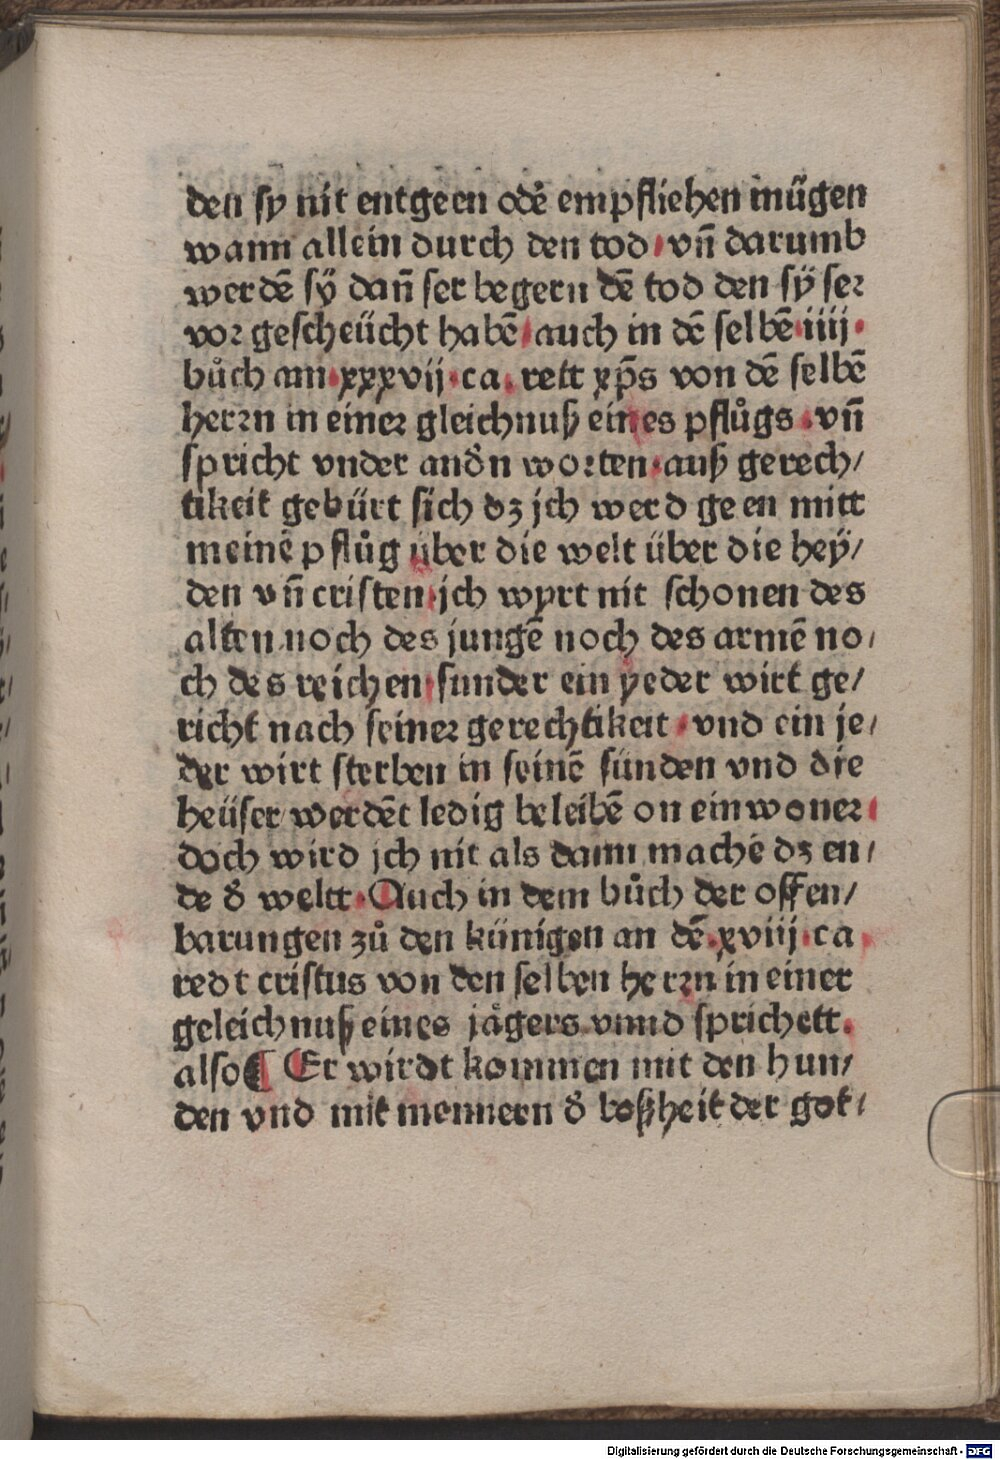 den sy nit entgeen odẽ empfliehen mügen
wann allein durch den tod· vñ darumb
werdẽ sÿ dañ ser begern dẽ tod den sÿ ser
vor gescheücht habẽ· auch in dẽ selbẽ·iiij·
bůch am·xxxvij·ca· rett xp̃s von dẽ selbẽ
herrn in einer gleichnuß eines pflůgs·vñ
spricht vnder andn worten·auß gerech/
tikeit gebürt sich dz jch werd geen mitt
meinẽ pflůg über die welt über die heÿ/
den vñ cristen·jch wyrt nit schonen des
alten noch des jungẽ noch des armẽ no/
ch des reichen·sunder ein yeder wirt ge/
richt nach seiner gerechtikeit·vnd ein je/
der wirt sterben in seinẽ sünden vnd die
heüser werdẽt ledig beleibẽ on einwoner·
doch wird jch nit als dann machẽ dz en/
de d̕ weltt·Auch in dem bůch der offen/
barungen zů den künigen an dẽ·xviij·ca·
redt cristus von den selben herrn in einer
geleichnuß eines jågers·vnnd sprichett·
also¶ Er wirdt kommen mit den hun/
den vnd mit mennern d̕ boßheit der got/
Digitalisierung gefördert durch die Deutsche Forschungsgemeinschaft - DFG